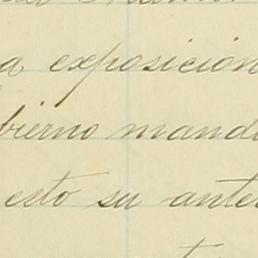 a exposición
bierno mand
esto su ante